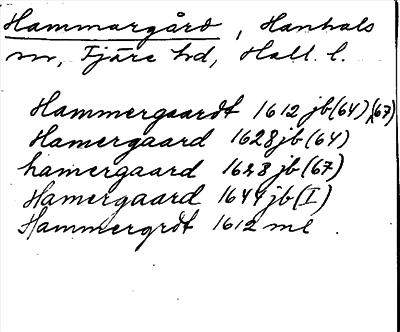 Hammargård, Hanhals
sn, Fjäre hd, Hall. l.
Hammergaardt 1612 jb (64), (67)
Hamergaard 1628 jb (64)
hamergaard 1628 jb (67)
Hamergaard 1644 jb (I)
Hammergrdt 1612 ml